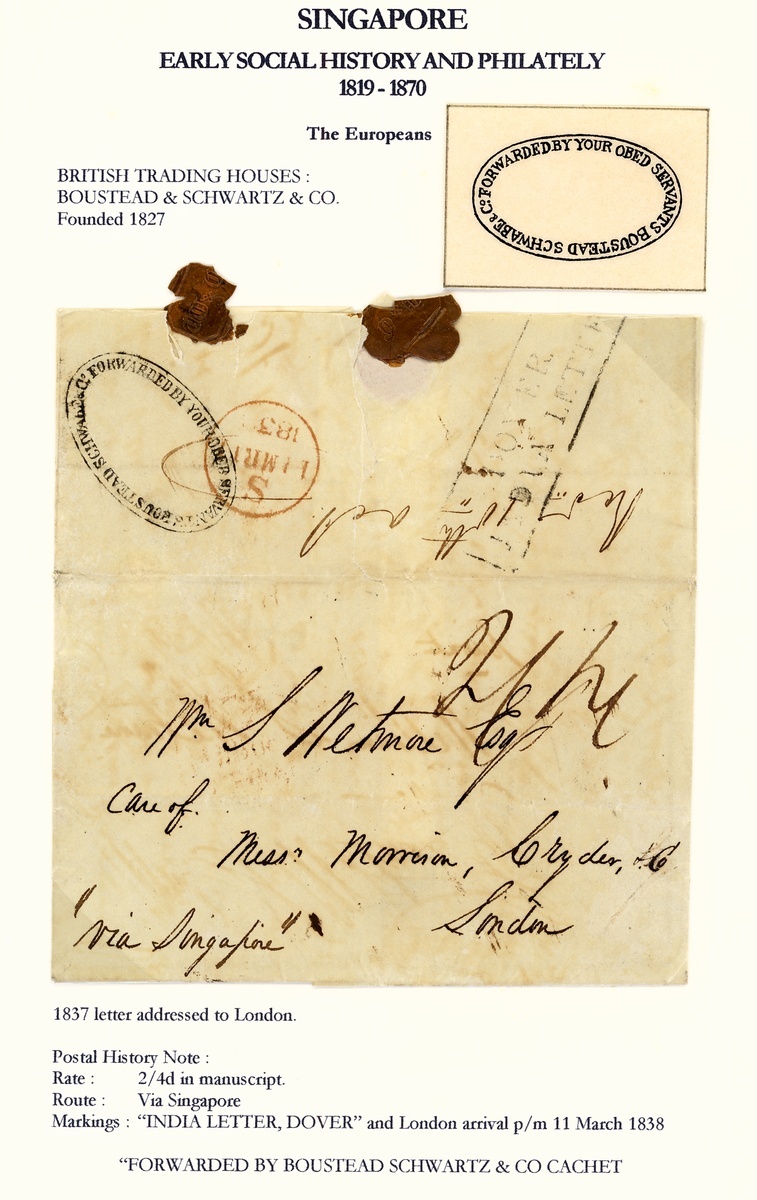 SINGAPORE
EARLY SOCIAL HISTORY AND PHILATELY
1819 - 1870
The Europeans
BRITISH TRADING HOUSES :
BOUSTEAD & SCHWARTZ & CO.
Founded 1827
FORWARDED BY YOUR OBED SERVANTS BOUSTEAD SCHWABE & Co
FORWARDED BY YOUR OBED SERVANTS BOUSTEAD SCHWABE & Co
S
11 MR 1
183
DOVER
INDIA LETTER
Wm S. Wetmore Esqr
Care of.
Messrs Morrison, Cryder, & Co
London
"via Singapore"
1837 letter addressed to London.
Postal History Note :
Rate : 2/4d in manuscript.
Route : Via Singapore
Markings : “INDIA LETTER, DOVER” and London arrival p/m 11 March 1838
“FORWARDED BY BOUSTEAD SCHWARTZ & CO CACHET